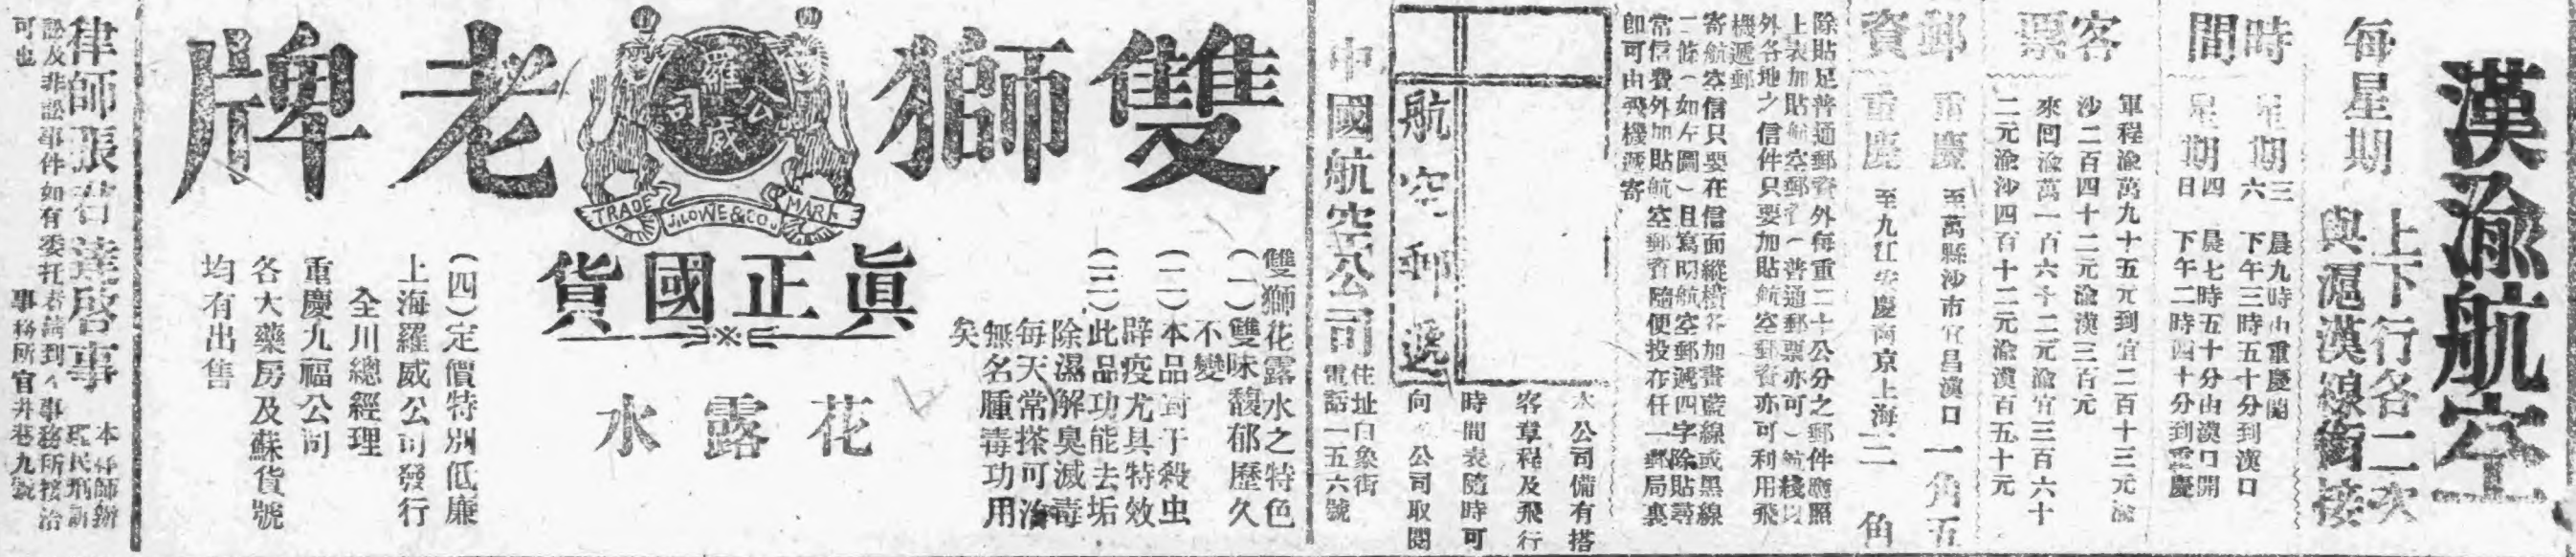 漢渝航空
每星期
上下行各二次
與滬漢線銜接
時間
星期三六
晨九時由重慶開
下午三時五十分到漢口
星期四日
晨七時五十分由漢口開
下午二時四十分到重慶
客票
單程渝萬九十五元到宜二百十三元渝
沙二百四十二元渝漢三百元
來回渝萬一百六十二元渝宜三百六十
二元渝沙四百十二元渝漢百五十元
郵資
重慶至萬縣沙市宜昌漢口一角五
重慶至九江安慶南京上海三角
除貼足普通郵資外每重二十公分之郵件應照
上表加貼航空郵(普通郵票亦可)航綫以
外各地之信件只要加貼航空郵資亦可利用飛
機遞郵
寄航空信只要在信面縱橫各加畫藍線或黑線
二條(如左圖)且寫明航空郵遞四字除貼尋
常信費外加貼航空郵資隨便投在任一郵局裏
即可由飛機遞寄
航空郵遞
本公司備有搭
客章程及飛行
時間表隨時可
向公司取閱
中國航空公司
住址白象街
電話一五六號
雙獅老牌
羅氏公司
TRADE MARK
J.LOWE & CO.
真正國貨
花露水
雙獅花露水之特色
(一)雙味馥郁歷久
不變
(二)本品對于殺虫
辟疫尤具特效
(三)此品功能去垢
除濕解臭滅毒
每天常搽可治
無名腫毒功用
矣
(四)定價特別低廉
上海羅威公司發行
全川總經理
重慶九福公司
各大藥房及蘇貨號
均有出售
律師張君達啓事
本律師辦
理民刑訴
訟及非訟事件如有委托者請到本事務所接洽
可也
事務所官井巷九號